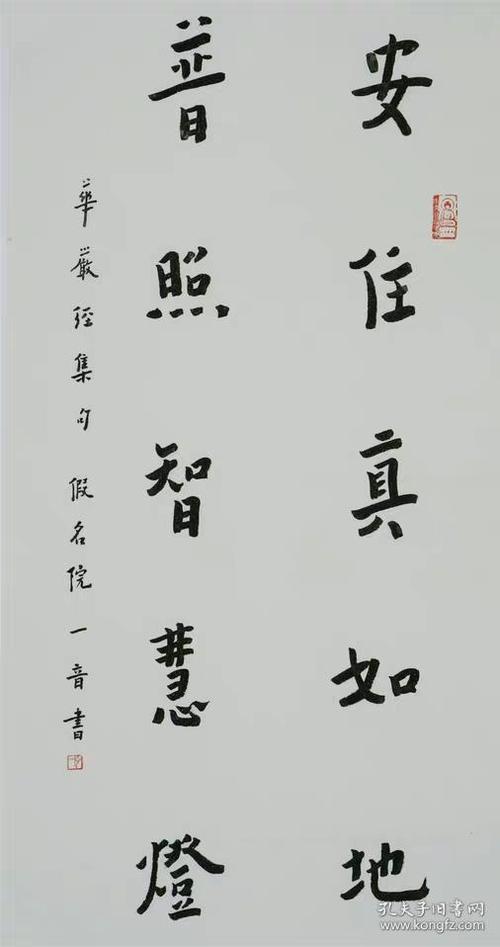 安住真如地
普照智慧燈
華嚴經集句 假名院一音書
孔夫子旧书网
www.kongfz.com